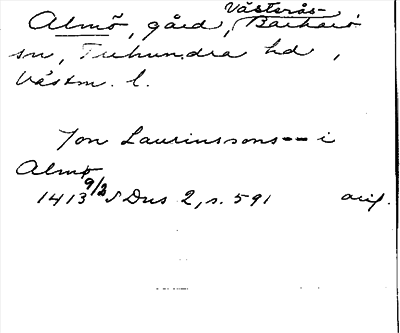 Almö, gård, Västerås-Barkarö
sn, Tuhundra hd,
Västm. l.
Jon Laurinssons -- i
Almø
1413 9/2 SDns 2, s. 591 orig.